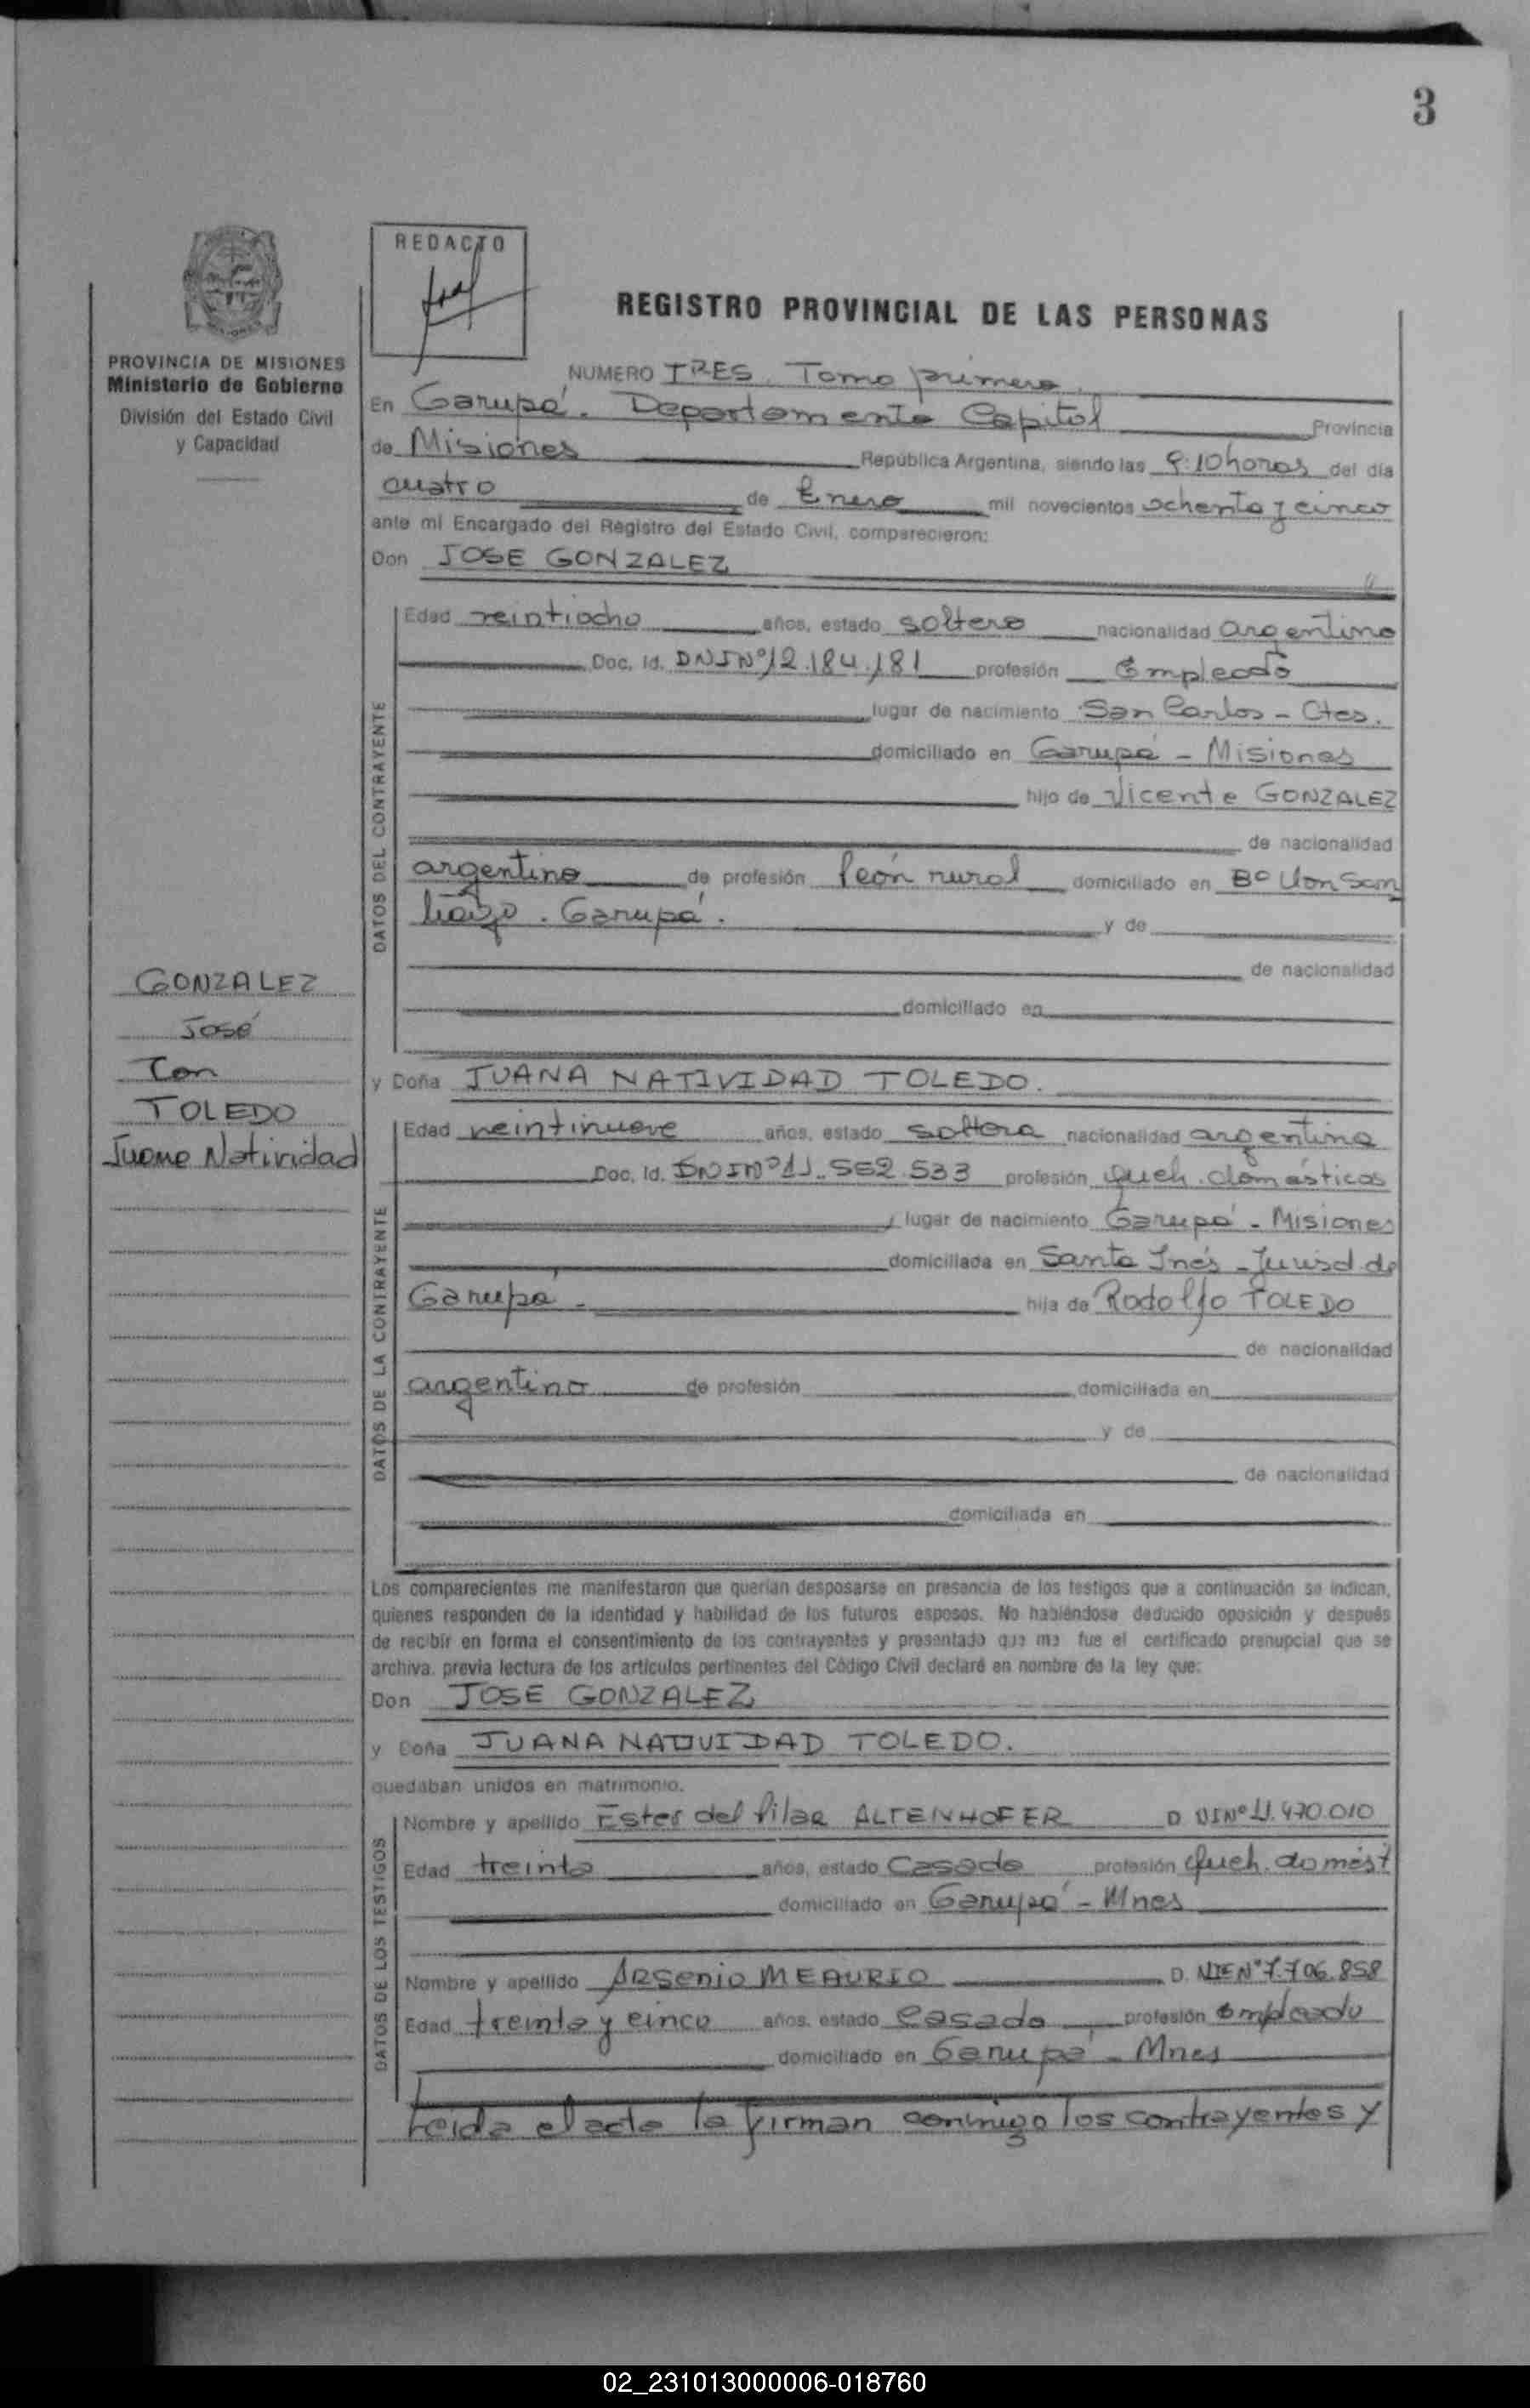 3
REDACTO
REGISTRO PROVINCIAL DE LAS PERSONAS
PROVINCIA DE MISIONES
Ministerio de Gobierno
División del Estado Civil
y Capacidad
NUMERO TRES. Tomo primero.
En Garupá. Departamento Capital Provincia
de Misiones República Argentina, siendo las 9:10 horas del día
cuatro de Enero mil novecientos ochenta y cinco
ante mi Encargado del Registro del Estado Civil, comparecieron:
Don JOSE GONZALEZ
DATOS DEL CONTRAYENTE
Edad veintiocho años, estado soltero nacionalidad argentino
Doc. Id. DNI Nº 12.184.181 profesión Empleado
lugar de nacimiento San Carlos - Ctes.
domiciliado en Garupá - Misiones
hijo de Vicente GONZALEZ
de nacionalidad
argentino de profesión Peón rural domiciliado en Bº
Garupá. y de
de nacionalidad
domiciliado en
GONZALEZ
José
Con
TOLEDO
Juana Natividad
y Doña JUANA NATIVIDAD TOLEDO.
DATOS DE LA CONTRAYENTE
Edad veintinueve años, estado soltera nacionalidad argentina
Doc. Id. DNI Nº 11.552.533 profesión Queh. domésticos
lugar de nacimiento Garupá - Misiones
domiciliada en Santa Inés - Jurisd. de
Garupá - hija de Rodolfo TOLEDO
de nacionalidad
argentino de profesión domiciliada en
y de
de nacionalidad
domiciliada en
Los comparecientes me manifestaron que querían desposarse en presencia de los testigos que a continuación se indican,
quienes responden de la identidad y habilidad de los futuros esposos. No habiéndose deducido oposición y después
de recibir en forma el consentimiento de los contrayentes y presentado que me fue el certificado prenupcial que se
archiva, previa lectura de los artículos pertinentes del Código Civil declaré en nombre de la ley que:
Don JOSE GONZALEZ
y Doña JUANA NATIVIDAD TOLEDO.
quedaban unidos en matrimonio.
DATOS DE LOS TESTIGOS
Nombre y apellido Ester del Pilar ALTENHOFER D NI Nº 11.470.010
Edad treinta años, estado Casada profesión Queh. domést
domiciliado en Garupá - Mnes
Nombre y apellido Arsenio MEAURIO D. NIE Nº 7.706.858
Edad treinta y cinco años, estado Casado profesión Empleado
domiciliado en Garupá - Mnes
Leida el acta la firman conmigo los contrayentes y
02_231013000006-018760